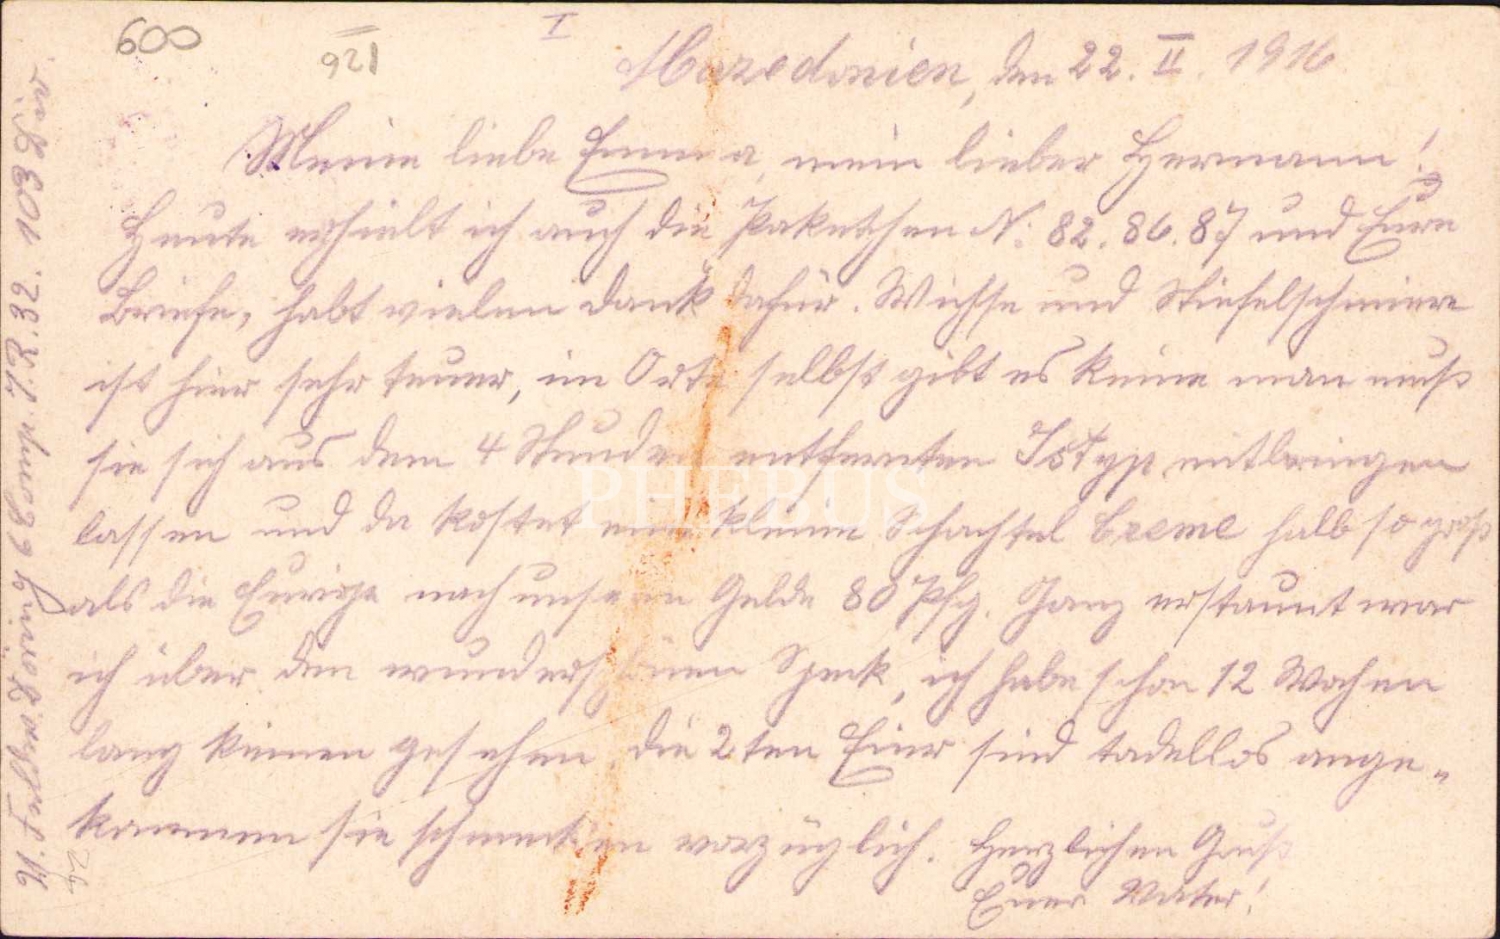 600
921
I
Mazedonien, den 22. II. 1916
Meine liebe Emma, mein lieber Hermann!
Heute erhielt ich auch die Paketchen N: 82. 86. 87 und Eure
Briefe, habt vielen Dank dafür. Wichse und Stiefelschmiere
ist hier sehr teuer, im Orte selbst gibt es keine man muß
sie sich aus dem 4 Stunden entfernten Istyp mitbringen
lassen und da kostet eine kleine Schachtel Creme halb so groß
als die Eurige nach unserem Gelde 80 Pfg. Ganz erstaunt war
ich über den wunderschönen Speck, ich habe schon 12 Wochen
lang keinen gesehen, die 2ten Eier sind tadellos ange„
kommen sie schmecken vorzüglich. Herzlichen Gruß
Euer Vater!
PHEBUS